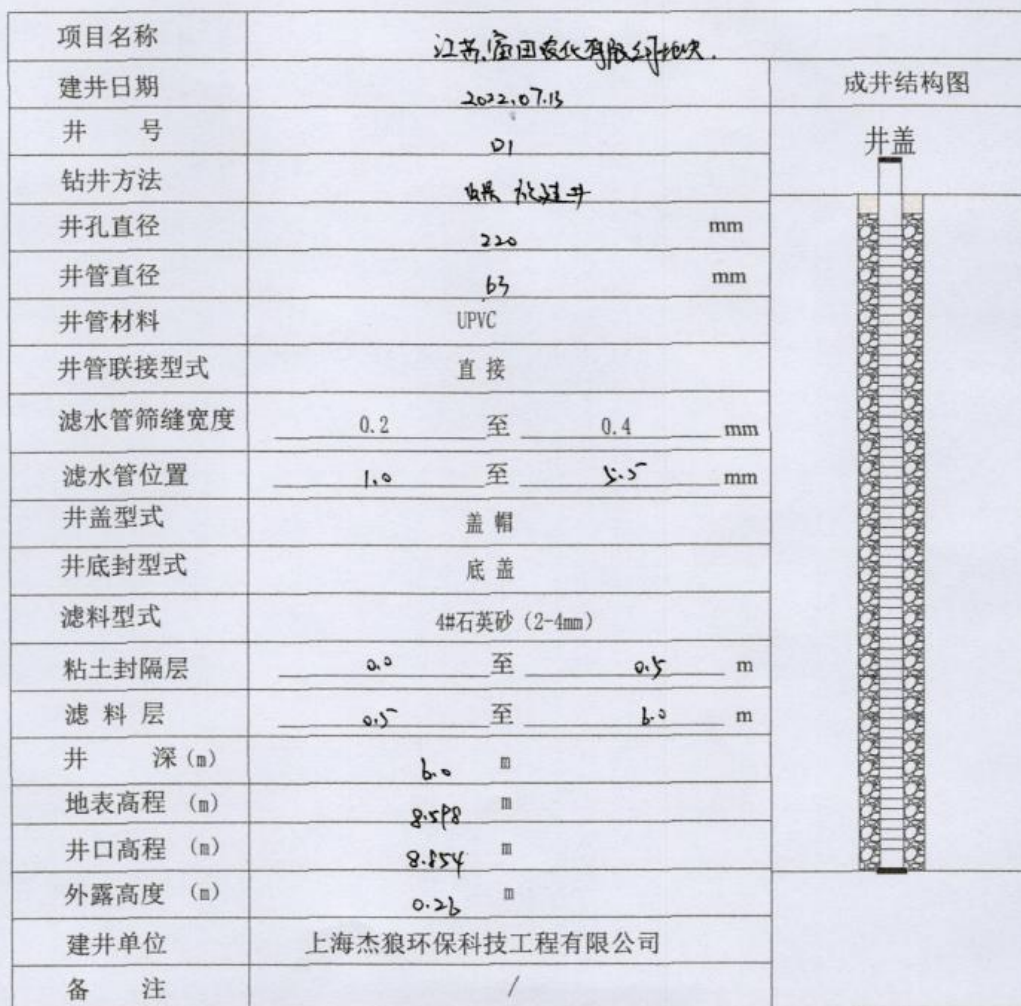 项目名称 江苏富田农化有限公司地块.
建井日期 2022.07.13
成井结构图
井 号 D1
井盖
钻井方法
井孔直径 220 mm
井管直径 63 mm
井管材料 UPVC
井管联接型式 直接
滤水管筛缝宽度 0.2 至 0.4 mm
滤水管位置 1.0 至 5.5 mm
井盖型式 盖帽
井底封型式 底盖
滤料型式 4#石英砂（2-4mm）
粘土封隔层 0.0 至 0.5 m
滤料层 0.5 至 6.0 m
井 深(m) 6.0 m
地表高程 (m) 8.598 m
井口高程 (m) 8.854 m
外露高度 (m) 0.26 m
建井单位 上海杰狼环保科技工程有限公司
备 注 /